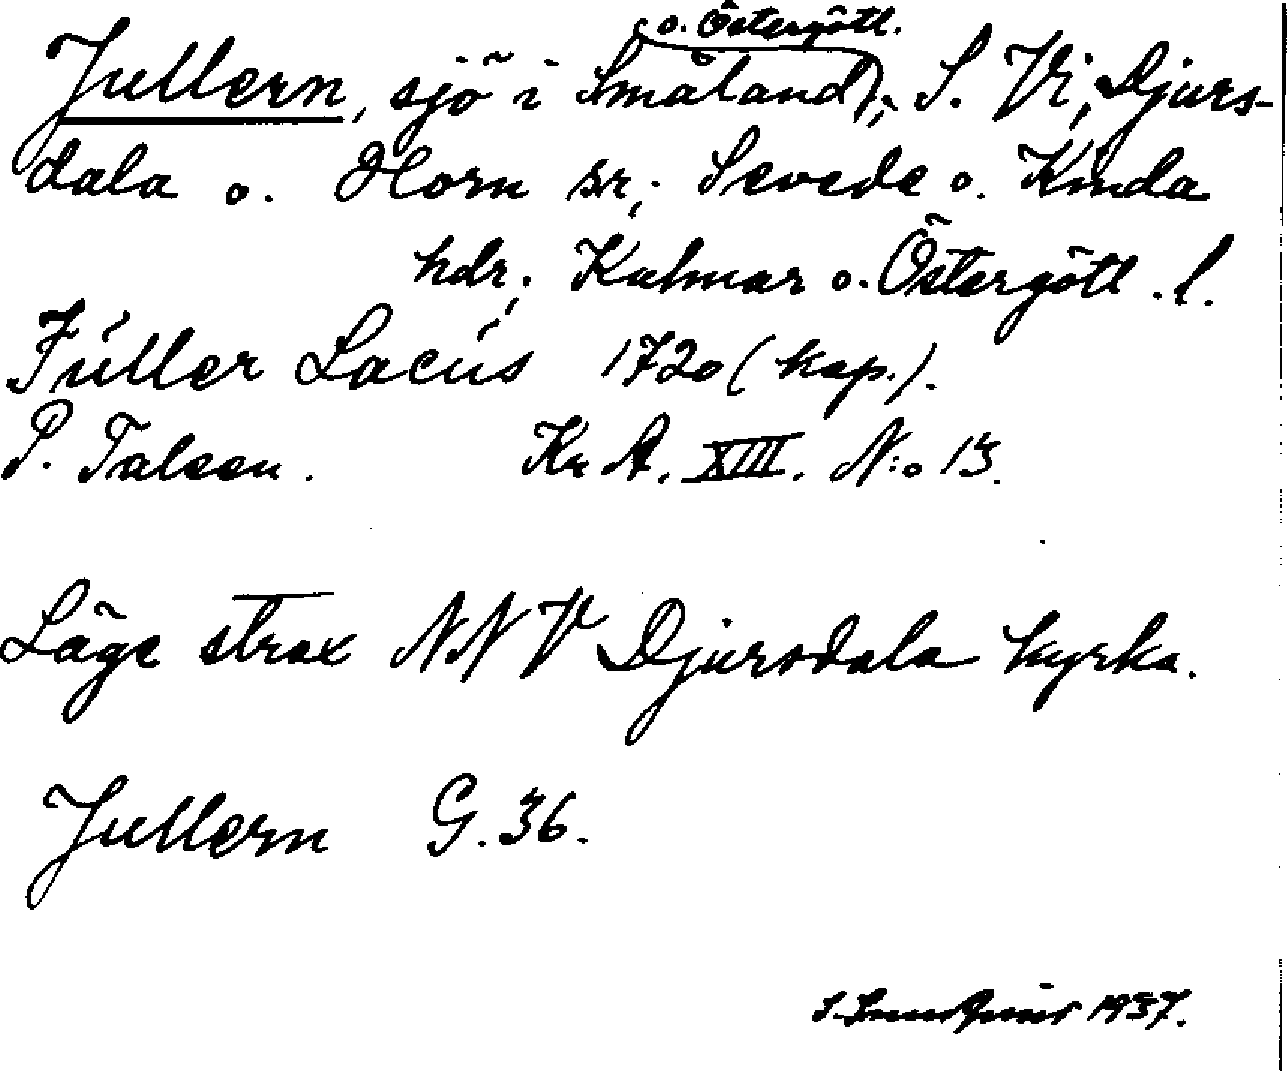 o. Östergötl.
Jullern, sjö i Småland, S. Vi, Djurs-
dala o. Horn sr, Sevede o. Kinda
hdr, Kalmar o. Östergötl. l.
Füller Lacus 1720 (kop.).
P. Taleen. Kr A. XIII. N:o 13.
Läge strax NNV Djursdala kyrka.
Jullern G. 36.
1937.